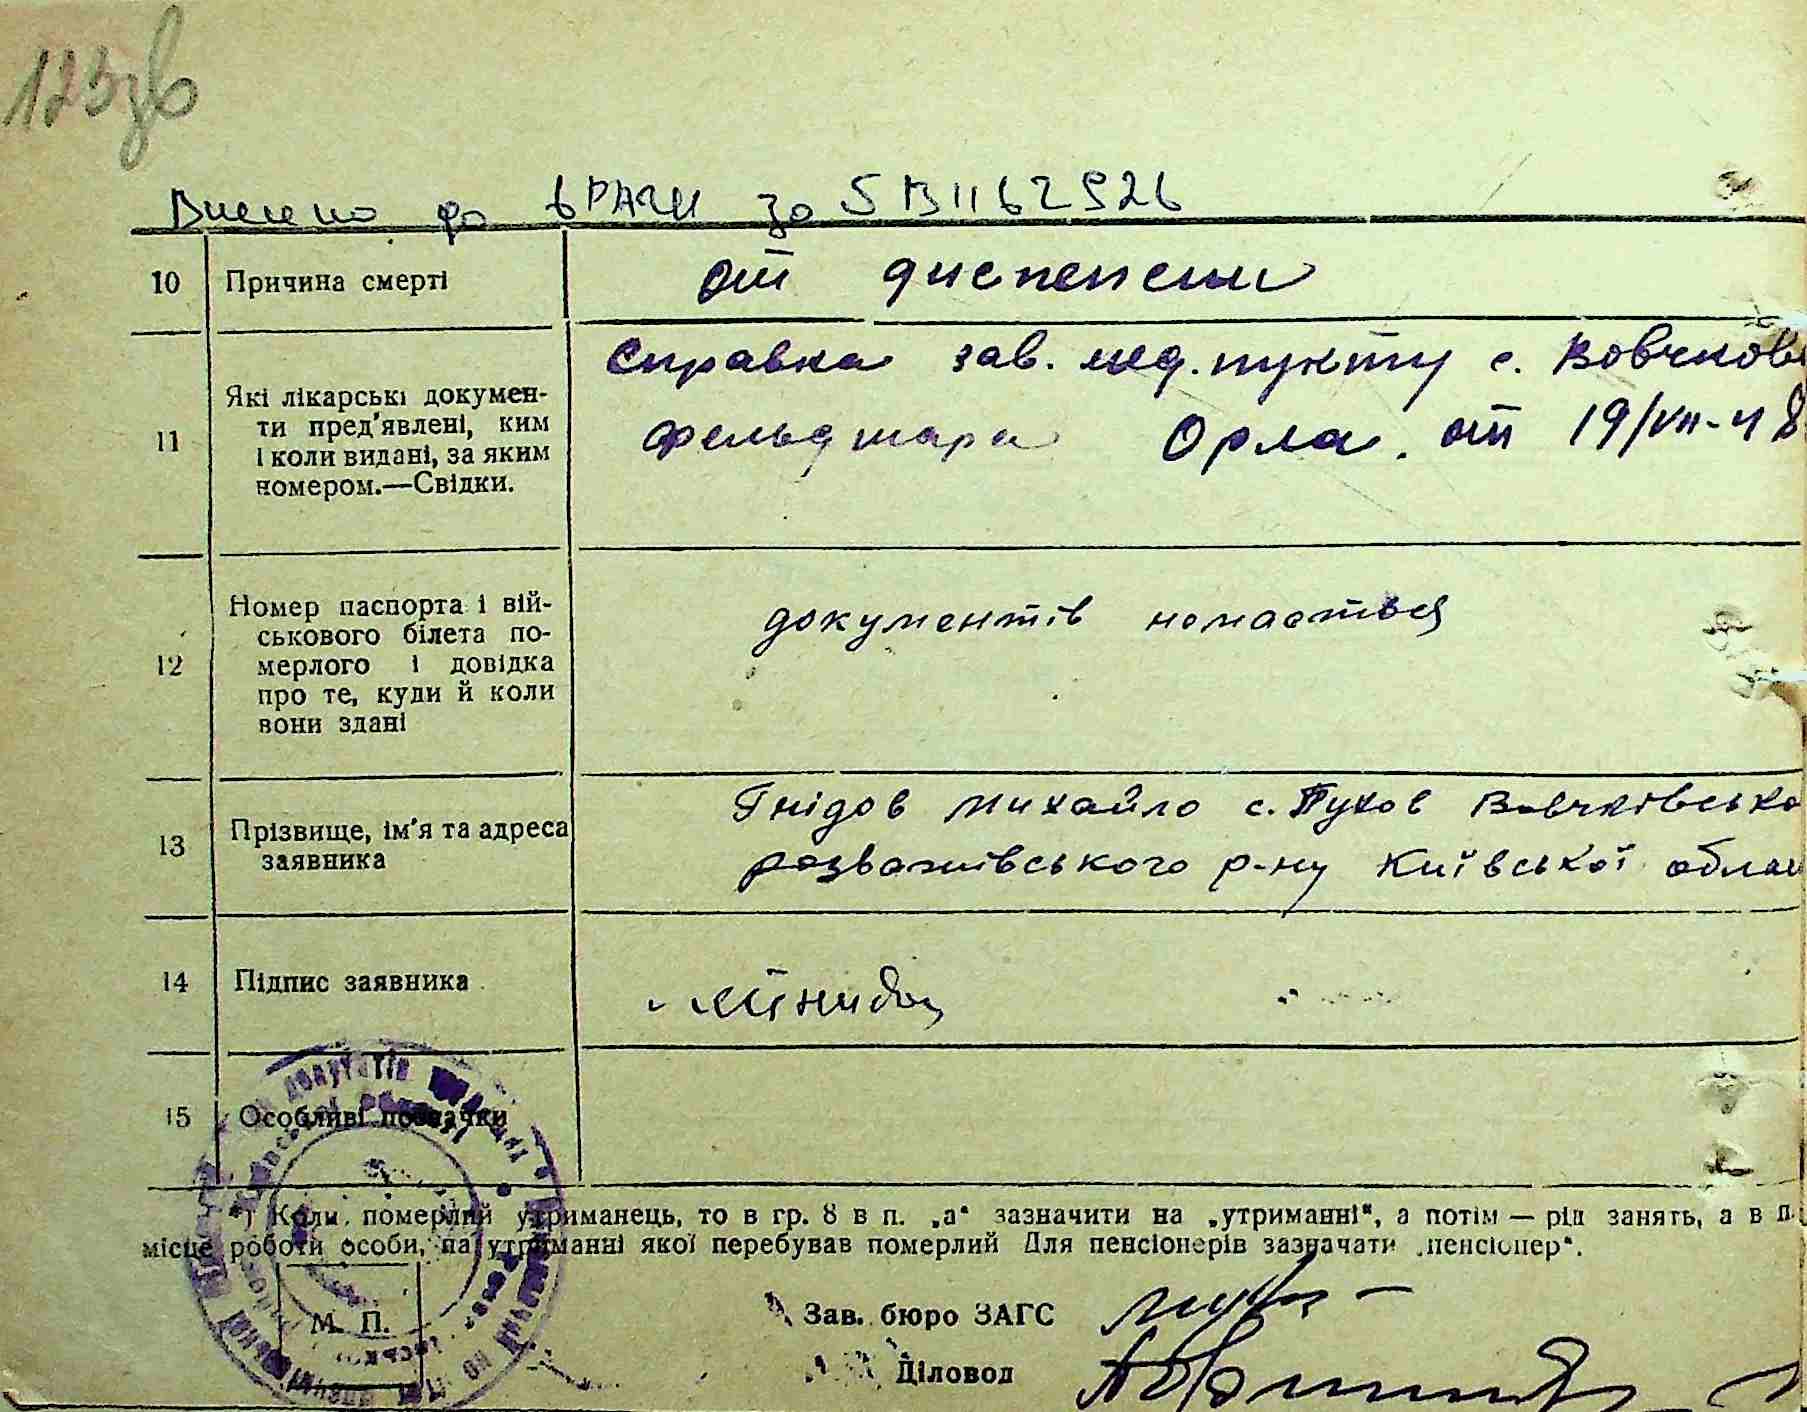 125зв
Внесено до ДРАЦС за
10 Причина смерті от диспепсии
11 Які лікарські докумен-
ти пред'явлені, ким
і коли видані, за яким
номером.—Свідки.
Справка зав. мед. пункту с. Вовчков
фельдшара Орла. от 19/VII-48
12 Номер паспорта і вій-
ськового білета по-
мерлого і довідка
про те, куди й коли
вони здані
документів немаеться
13 Прізвище, ім'я та адреса
заявника
Гнідов Михайло с. Пухов Вовчківсько
розважівського р-ну Київської облас
14 Підпис заявника
15 Особливі позначки
*) Коли померлий утриманець, то в гр. 8 в п. „а“ зазначити на „утриманні“, а потім — рід занять, а в п.
місце роботи особи, на утриманні якої перебував померлий Для пенсіонерів зазначати „пенсіонер“.
М. П.
Зав. бюро ЗАГС
Діловод